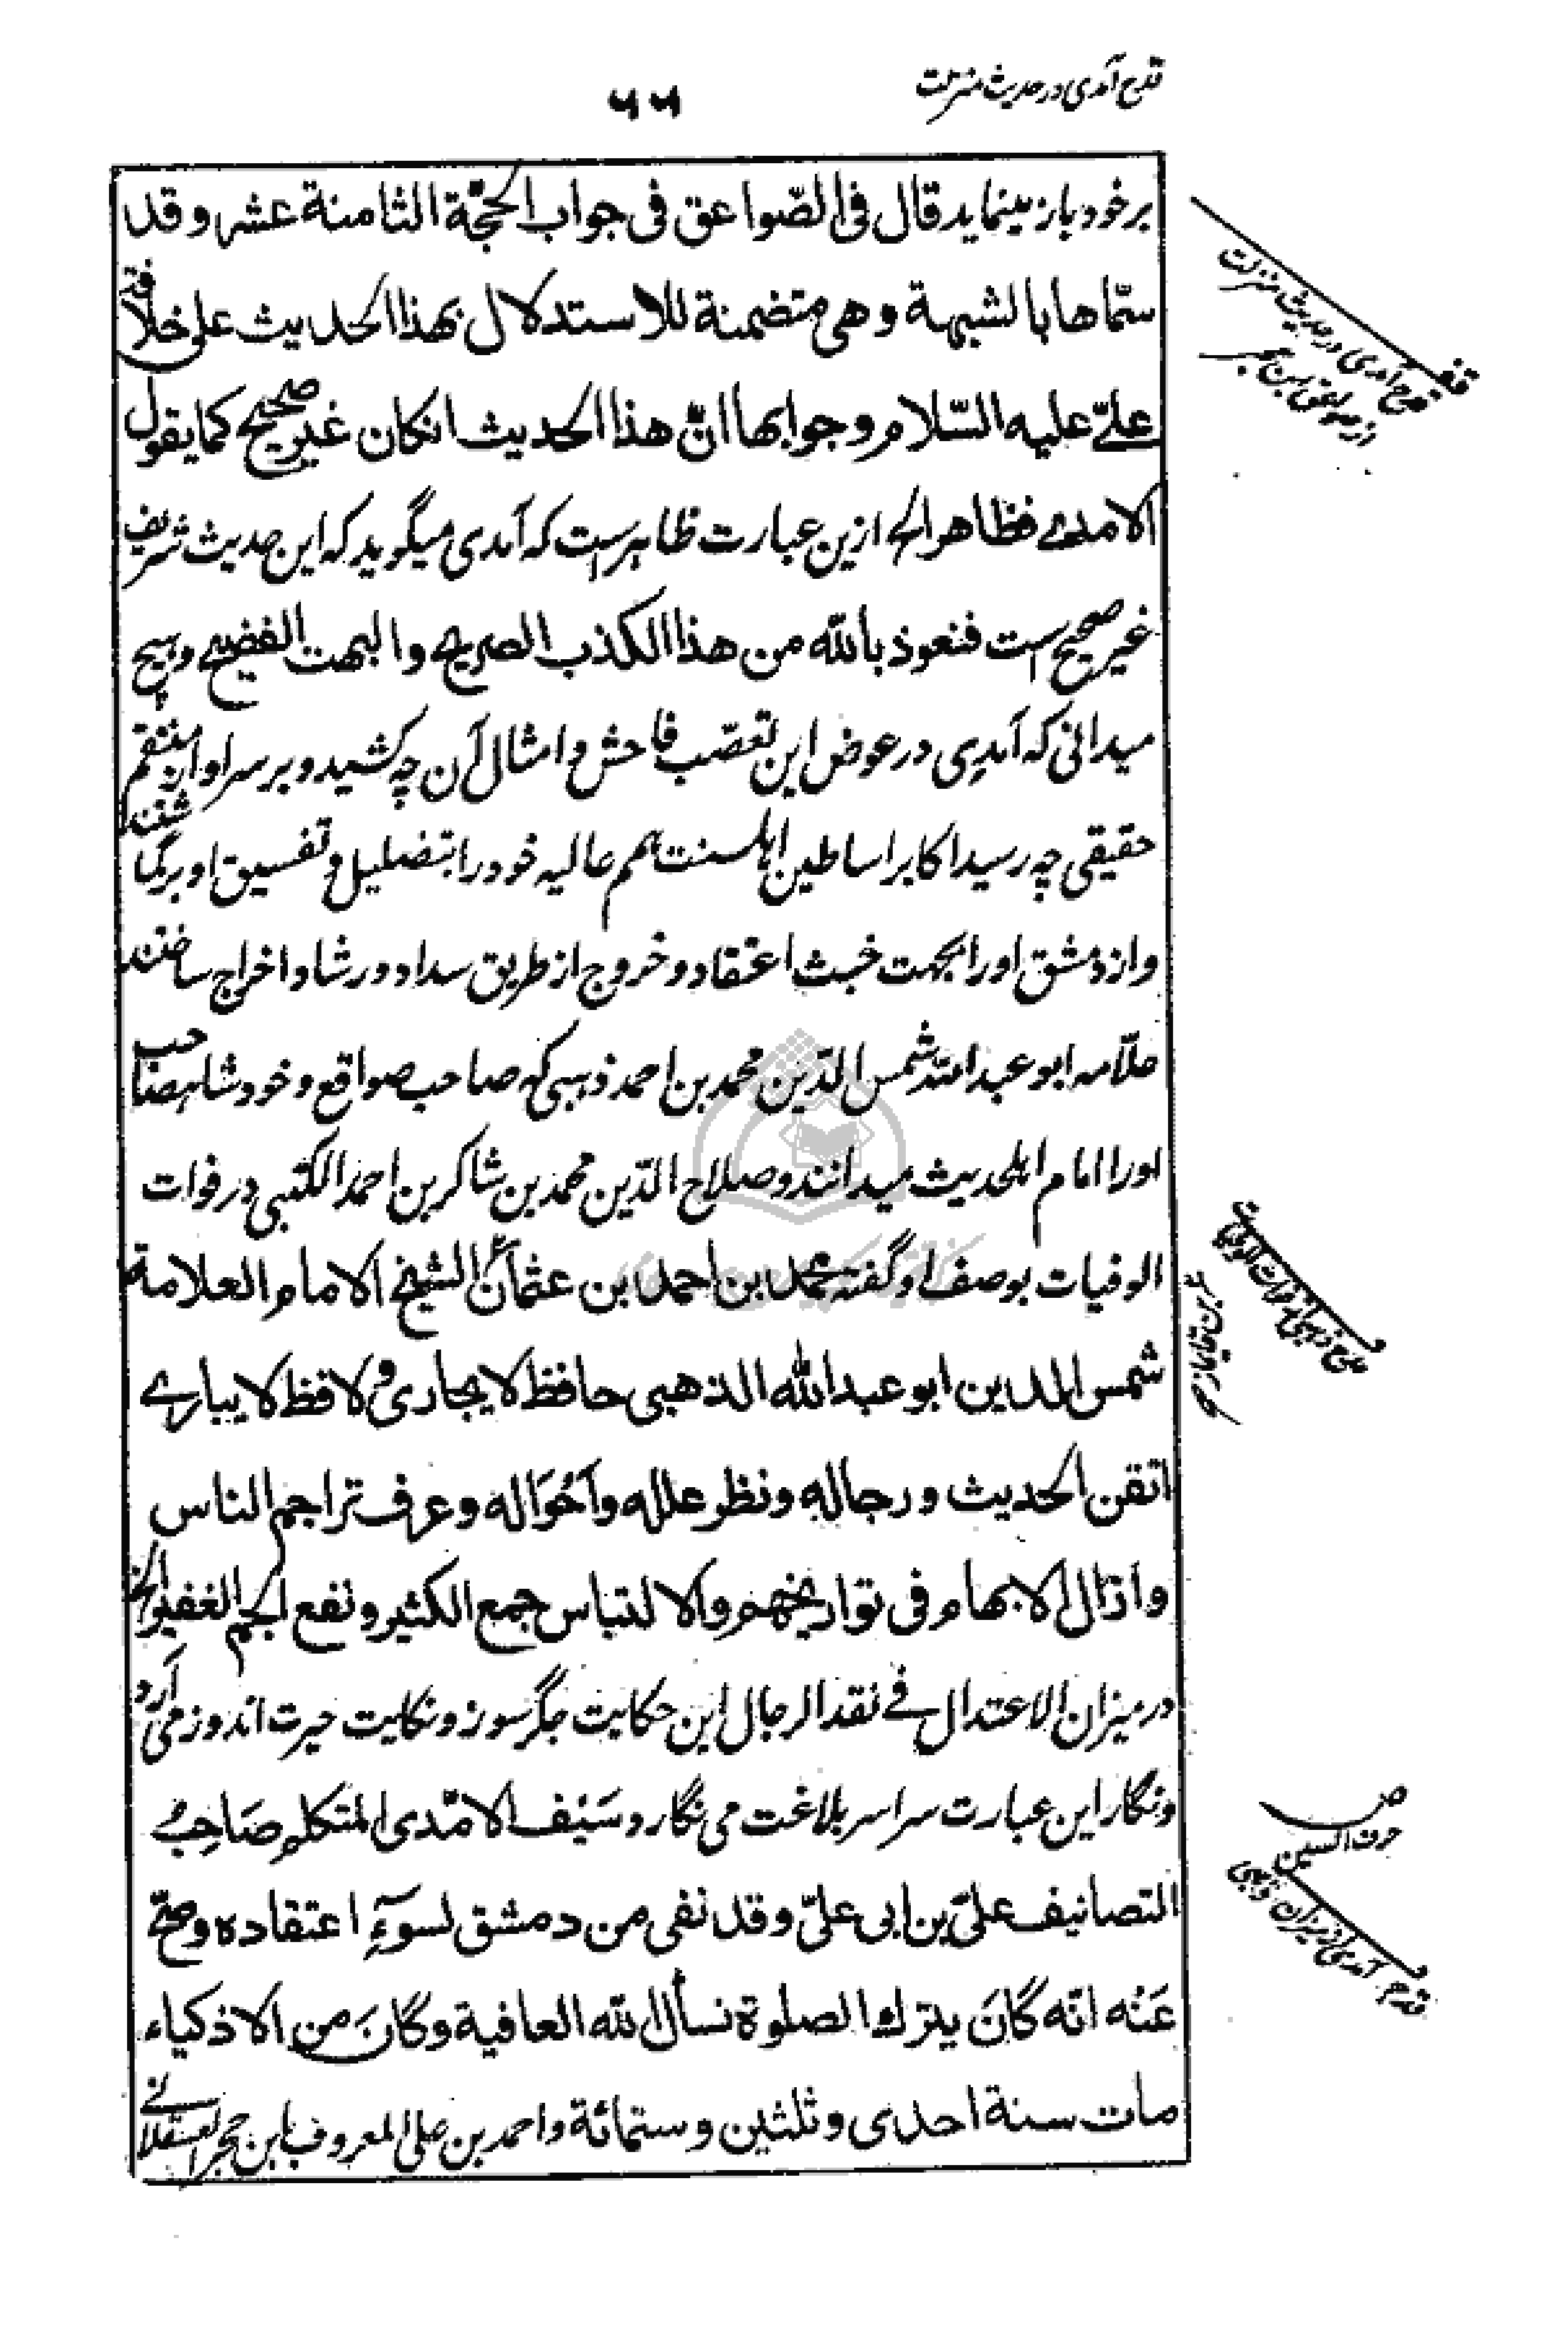 قدح آمدی در حدیث منزلت
۶۶
بر خود باز مینماید قال فی الصّواعق فی جواب الحجّة الثامنة عشر و قد
سمّاها بالشبهة و هی متضمنة للاستدلال بهذا الحدیث علی خلافة
علیّ علیه السّلام و جوابها انّ هذا الحدیث انکان غیر صحیح کما یقول
الامدے فظاهر الخ ازین عبارت ظاهرست که آمدی میگوید که این حدیث شریف
غیر صحیح است فنعوذ بالله من هذا الکذب الصریح و البهت الفضیح و هیچ
میدانی که آمدی در عوض این تعصّب فاحش و امثال آن چه کشید و بر سر او از منتقم
حقیقی چه رسید اکابر اساطین اهلسنت همم عالیه خود را بتضلیل و تفسیق او برگماشتند
و از دمشق او را بجهت خبث اعتقاد و خروج از طریق سداد و رشاد اخراج ساختند
علّامه ابو عبد الله شمس الدّین محمد بن احمد ذهبی که صاحب صواقع و خود شاهصاحب
او را امام اهلحدیث میدانند و صلاح الدّین محمد بن شاکر بن احمد الکتبی در فوات
الوفیات بوصف او گفته محمد بن احمد بن عثمان الشیخ الامام العلامة
شمس الدین ابو عبد الله الذهبی حافظ لا یجاری و لافظ لا یبارے
اتقن الحدیث و رجاله و نظر علله و اَحْوَاله و عرف تراجم الناس
و ازال الابهام فی تواریخهم و الالتباس جمع الکثیر و نفع الجم الغفیر الخ
در میزان الاعتدال فے نقد الرجال این حکایت جگر سوز و نکایت حیرت اندوز می آرد
و نگار این عبارت سراسر بلاغت می نگارد سَیْف الامدی المتکلم صَاحِبُ
التصانیف علیّ بن ابی علیّ و قد نفی من دمشق لسوءِ اعتقاده و صحّ
عَنْه انّه کَانَ یترك الصلوة نسأل الله العافیة و کَانَ من الاذکیاء
مات سنة احدی و ثلثین و ستمائة و احمد بن علی المعروف بابن حجر العسقلانے
قدح آمدی در حدیث منزلت
از صواعق ابن حجر
مدح ذهبی از فوات الوفیات
بن قایماز
حرف السین
قدح آمدی از میزان ذهبی